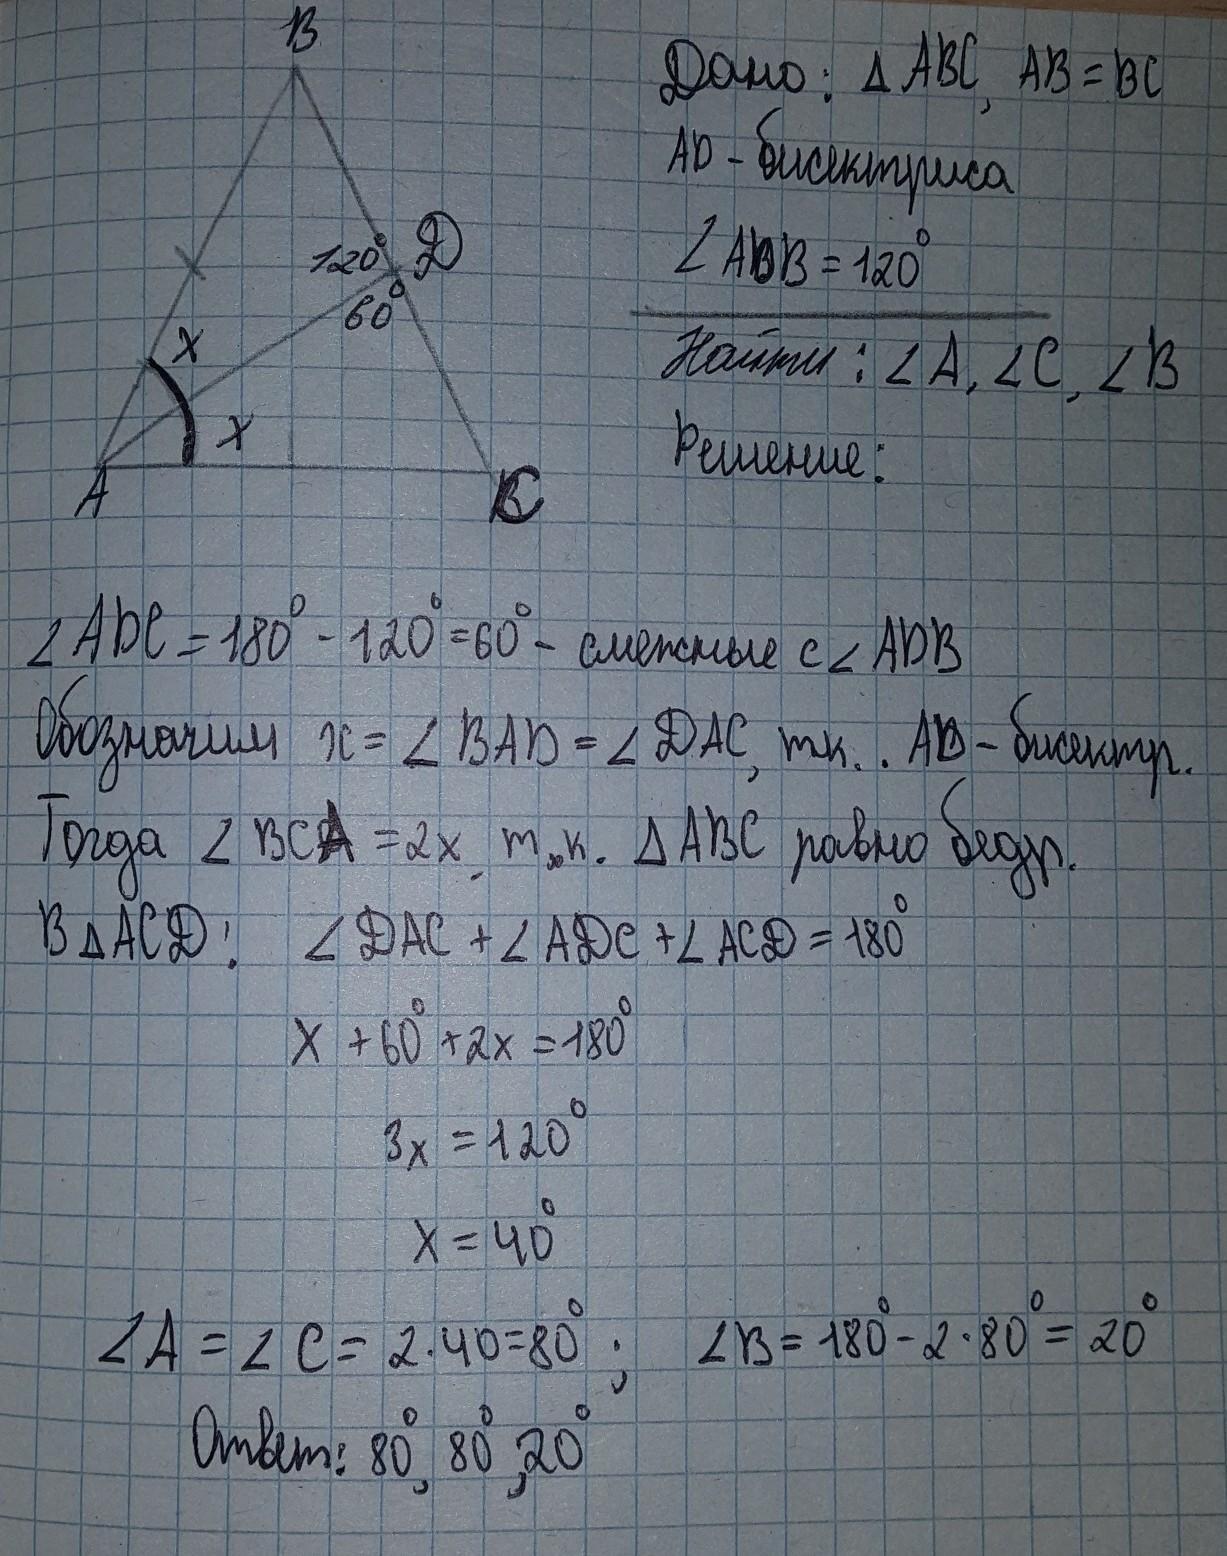 B
Дано: Δ ABC, AB = BC
AD - бисектриса
120° D
∠ADB = 120°
60°
Найти: ∠A, ∠C, ∠B
x
x
Решение:
A
C
∠ADC = 180° - 120° = 60° - смежные с ∠ADB
Обозначим x = ∠BAD = ∠DAC, т.к. . AD - бисектр.
Тогда ∠BCA = 2x, т.к. Δ ABC равно бедр.
В Δ ACD: ∠DAC + ∠ADC + ∠ACD = 180°
x + 60° + 2x = 180°
3x = 120°
x = 40°
∠A = ∠C = 2·40 = 80° ; ∠B = 180° - 2·80° = 20°
Ответ: 80°, 80°, 20°